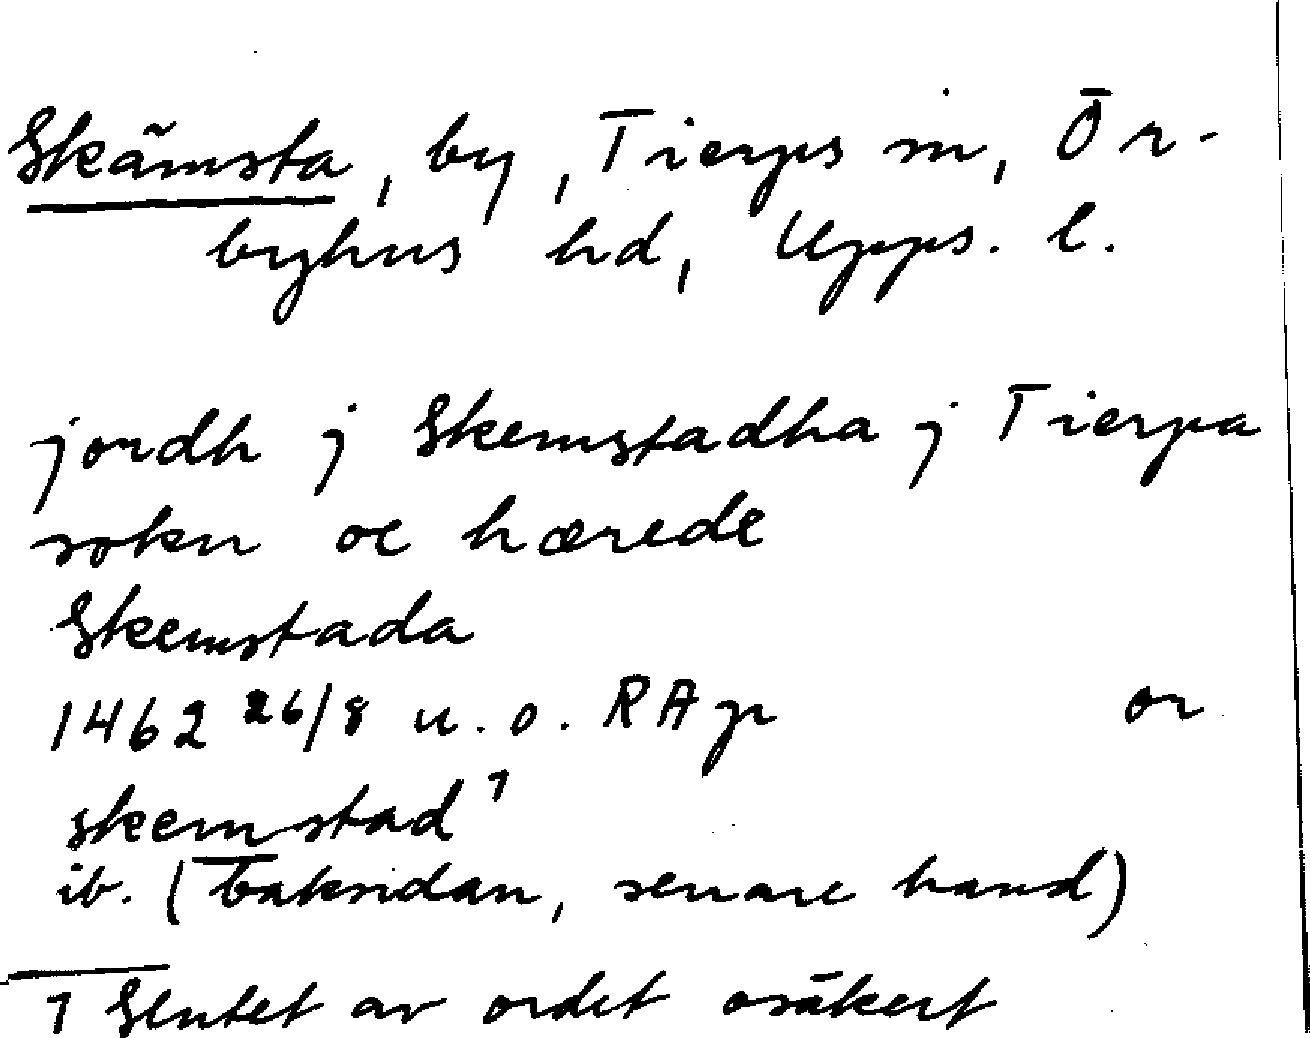 Skämsta, by, Tierps sn, Ör-
byhus hd, Upps. l.
jordh j Skemstadha j Tierpa
sokn oc hærede
Skemstada
1462 26/8 u. o. RAp or
skemstad1
ib. (baksidan, senare hand)
1 Slutet av ordet osäkert